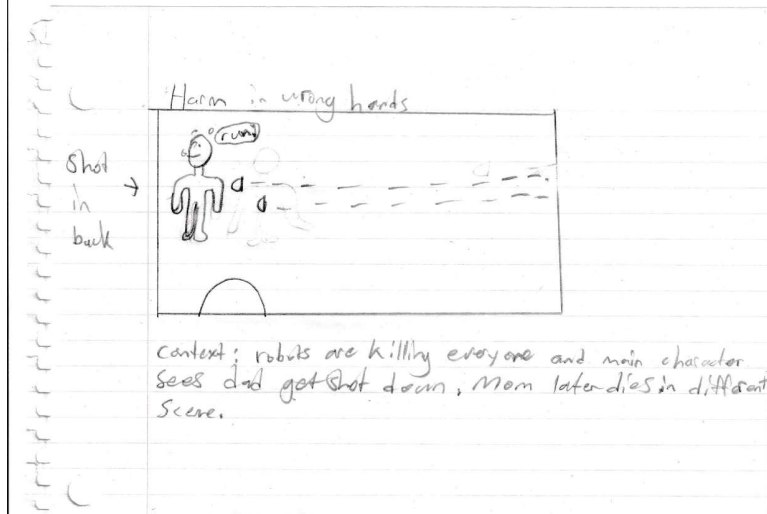 Harm in wrong hands
run!
Shot
in
back
context: robots are killing everyone and main character
sees dad get shot down, Mom later dies in different
scene.